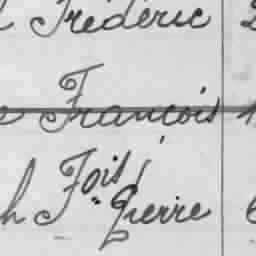 Frédéric
François
h Fois Pierre